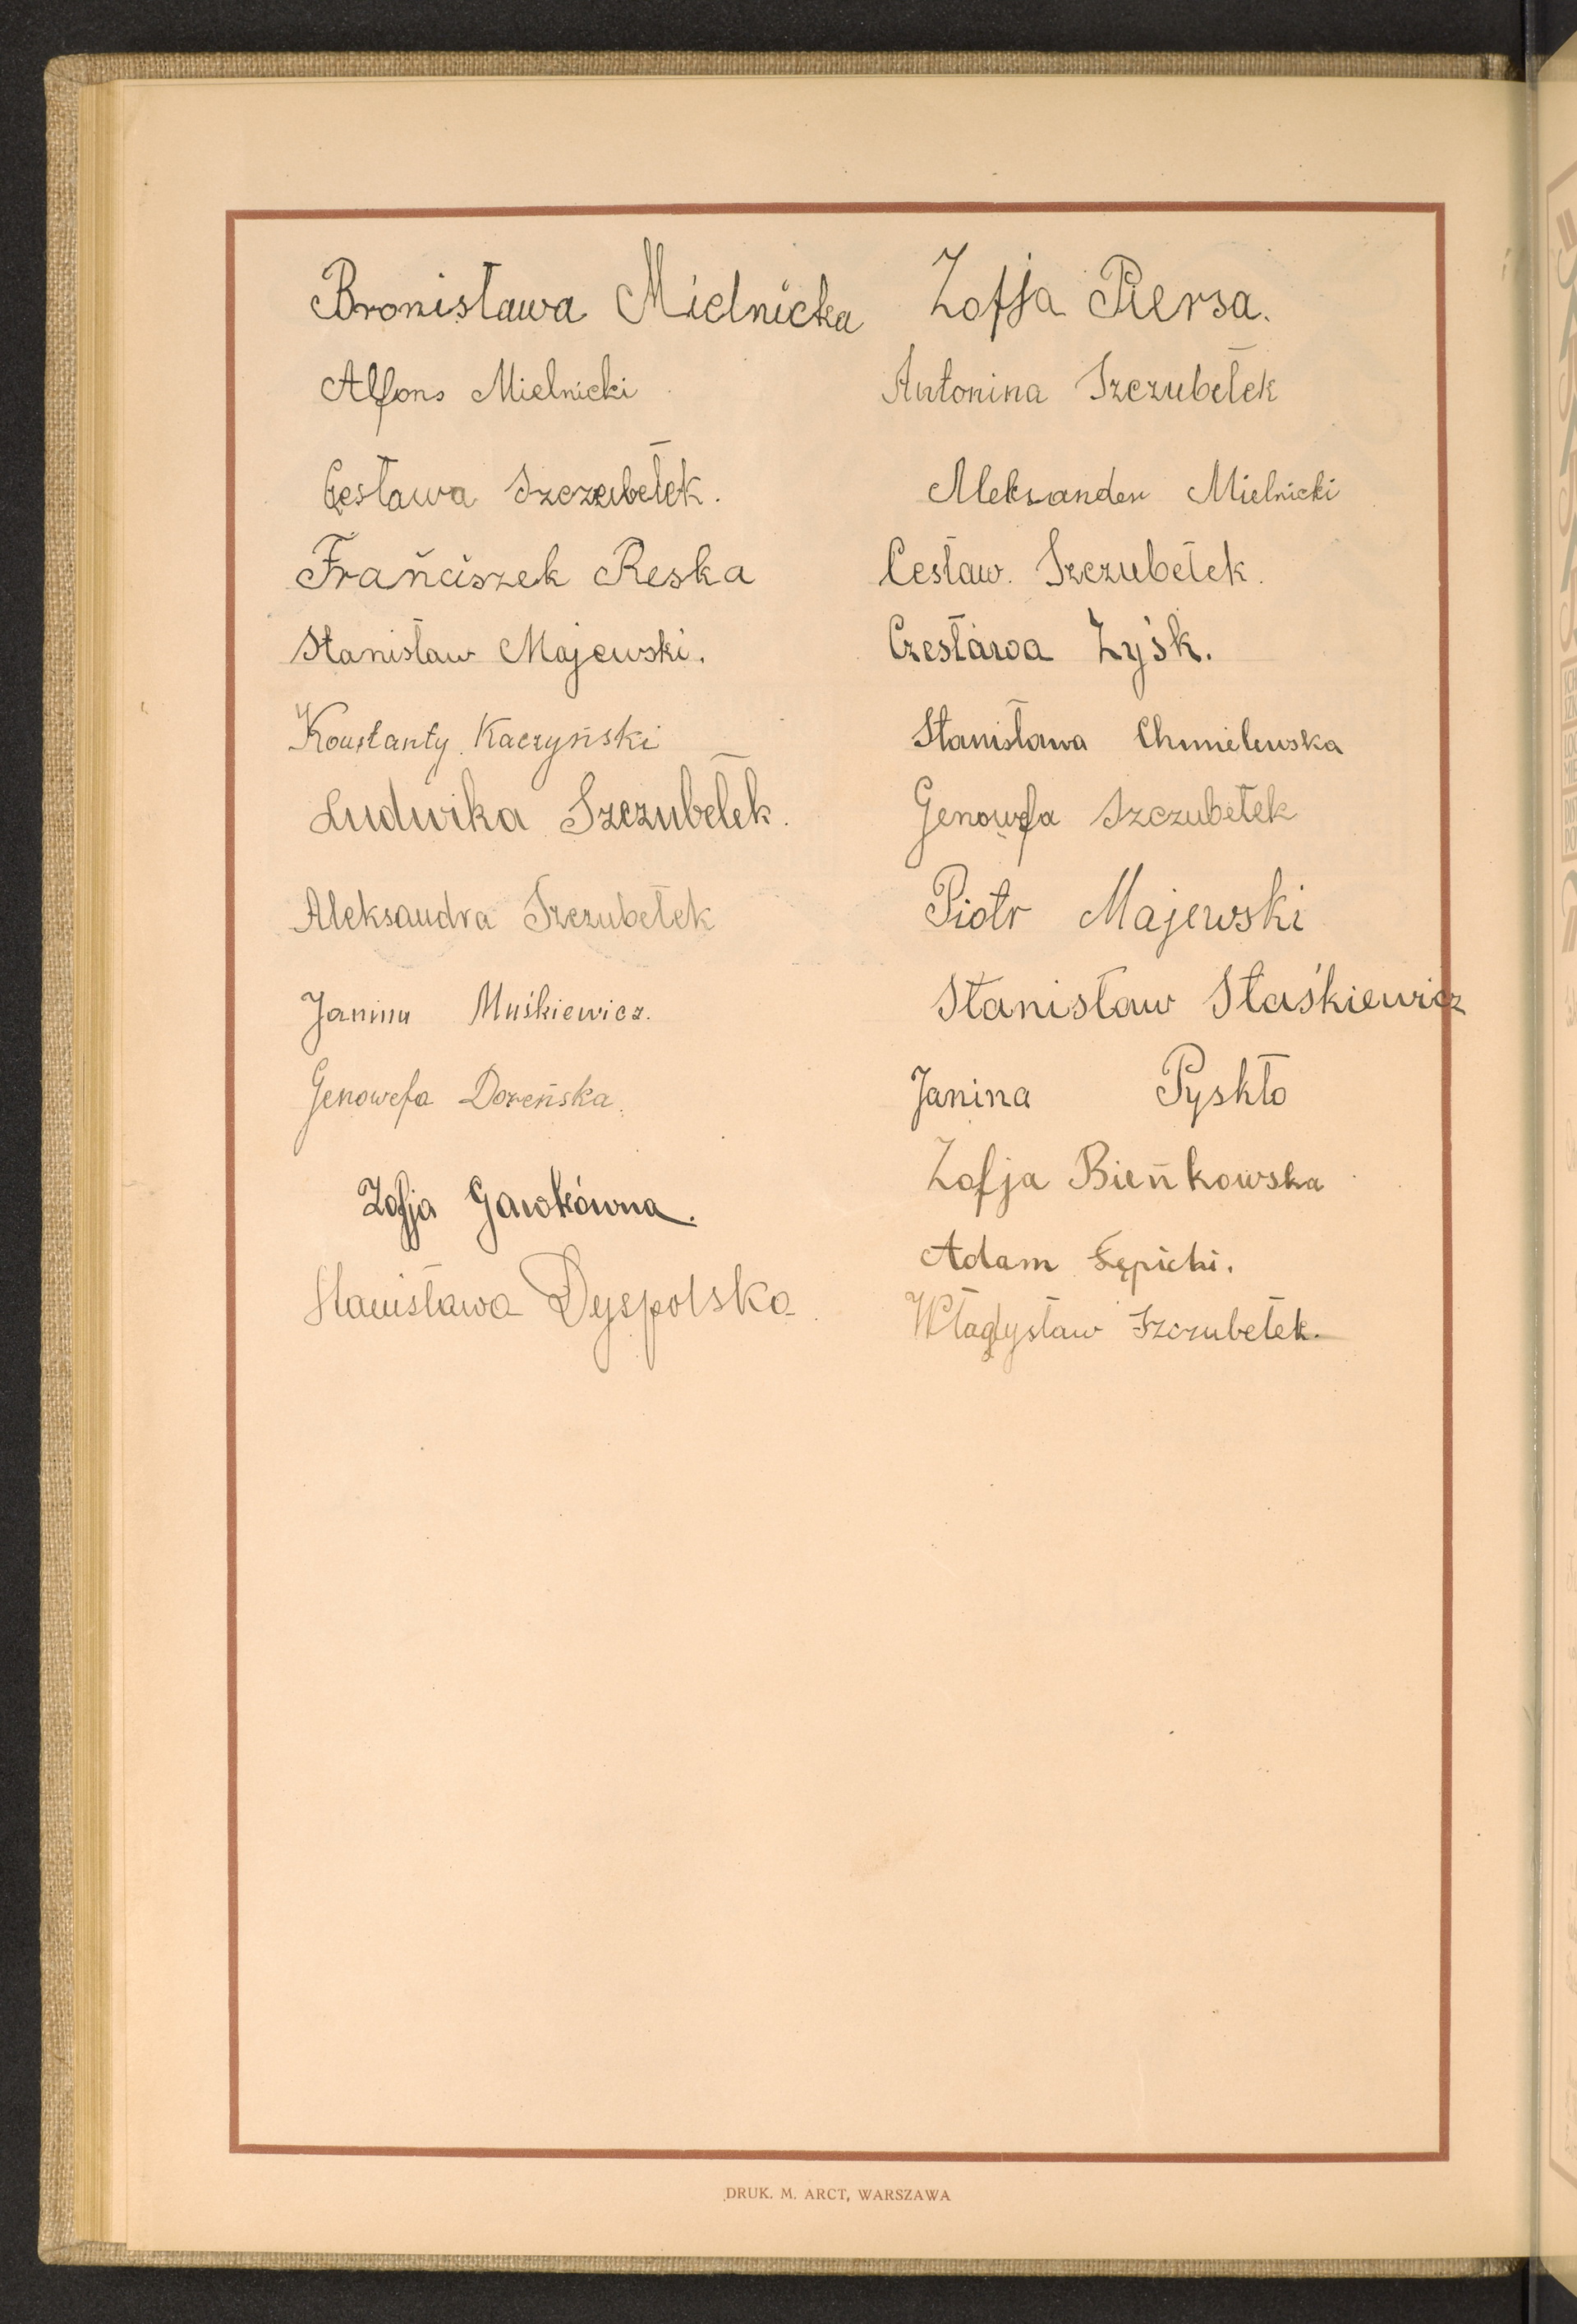 Bronisława Mielnicka
Alfons Mielnicki
Cesława Szczubełek.
Frańciszek Reska
Stanisław Majewski.
Konstanty Kaczyński
Ludwika Szczubełek.
Aleksandra Szczubełek
Janina Muśkiewicz.
Genowefa Doreńska.
Zofja Gawkówna.
Stanisława Dyspolska
Zofja Piersa.
Antonina Szczubełek
Aleksander Mielnicki
Cesław. Szczubełek.
Czesława Zyśk.
Stanisława Chmielewska
Genowefa Szczubełek
Piotr Majewski
Stanisław Staśkiewicz
Janina Pyskło
Zofja Bieńkowska
Adam Łępicki.
Władysław Szczubełek.
DRUK. M. ARCT, WARSZAWA